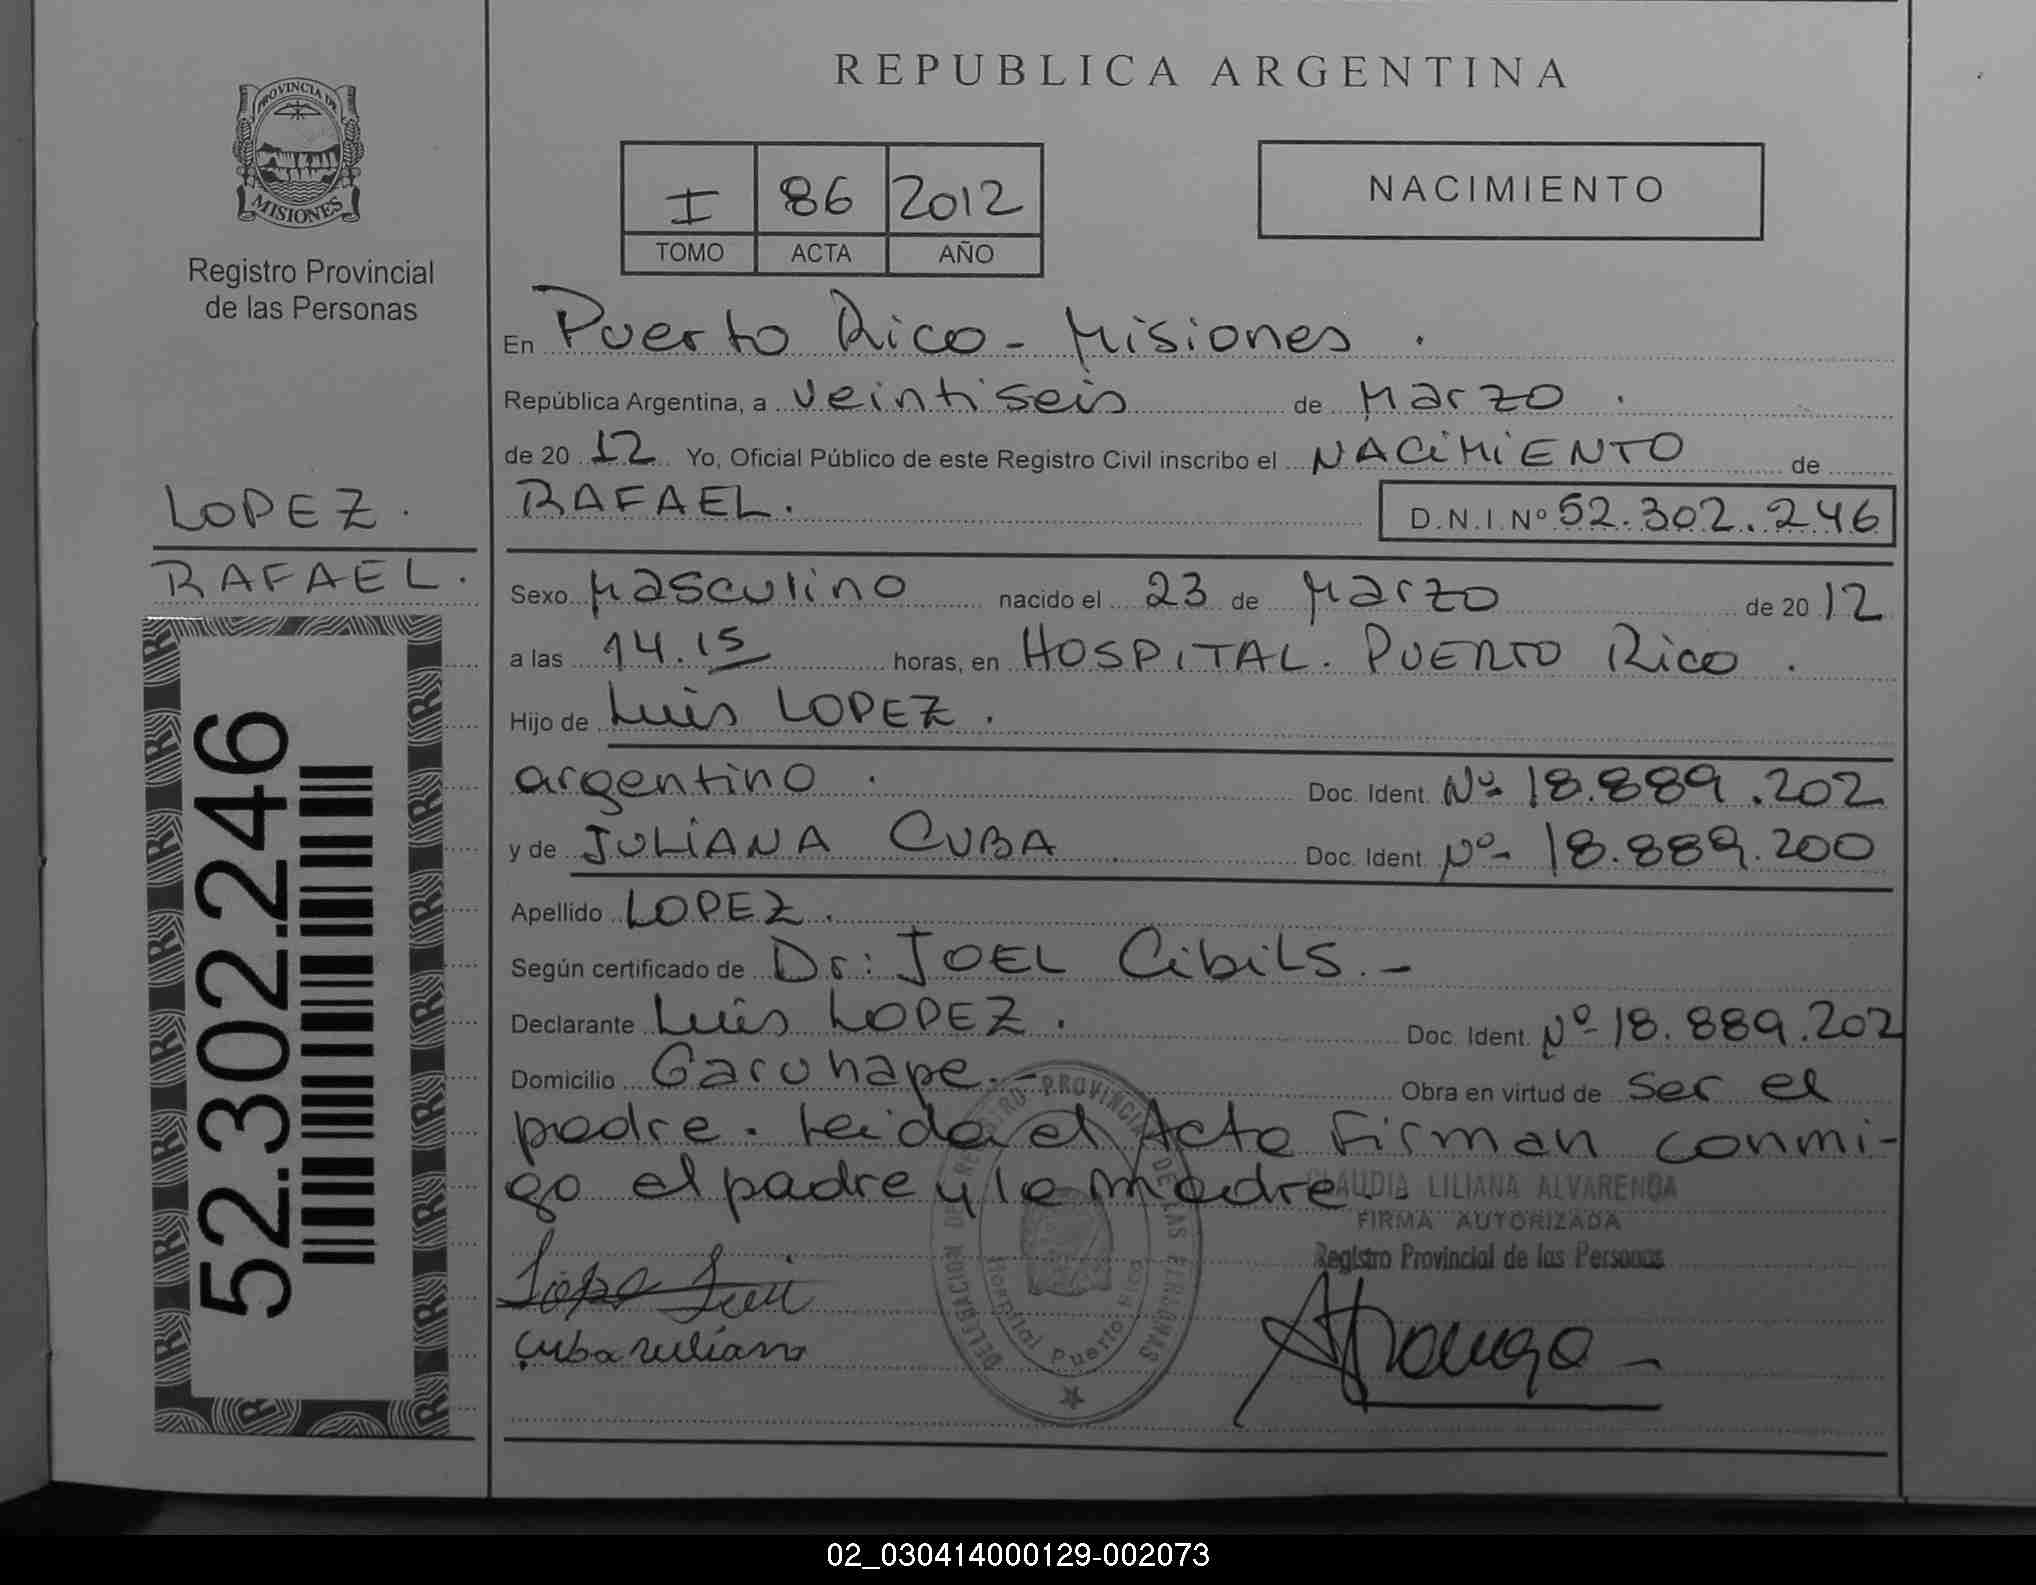 REPUBLICA ARGENTINA
PROVINCIA DE
MISIONES
Registro Provincial
de las Personas
I 86 2012
TOMO ACTA AÑO
NACIMIENTO
En Puerto Rico - Misiones.
República Argentina, a veintiseis de Marzo.
de 20 12 Yo, Oficial Público de este Registro Civil inscribo el NACIMIENTO de
RAFAEL. D.N.I. Nº 52.302.246
LOPEZ.
RAFAEL.
52.302.246
Sexo Masculino nacido el 23 de Marzo de 20 12
a las 14.15 horas, en HOSPITAL. PUERTO Rico.
Hijo de Luis LOPEZ.
argentino. Doc. Ident. Nº 18.889.202
y de JULIANA CUBA Doc. Ident. Nº- 18.889.200
Apellido LOPEZ.
Según certificado de Dr: JOEL CibiLS.-
Declarante Luis LOPEZ. Doc. Ident. Nº 18.889.202
Domicilio Garuhape.- Obra en virtud de ser el
padre. Leida el Acta Firman conmi-
go el padre y la madre.
CLAUDIA LILIANA ALVARENGA
FIRMA AUTORIZADA
Registro Provincial de las Personas
Lopez Luis
Cuba Juliana
DELEGACION DE REGISTRO PROVINCIAL DE LAS PERSONAS
Hospital Puerto Rico
02_030414000129-002073